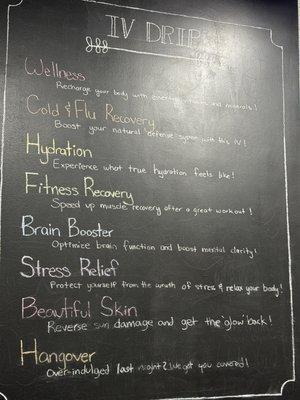 IV DRIPS
Wellness
Recharge your body with essential vitamins and minerals!
Cold & Flu Recovery
Boost your natural defense system with this IV!
Hydration
Experience what true hydration feels like!
Fitness Recovery
Speed up muscle recovery after a great workout!
Brain Booster
Optimize brain function and boost mental clarity!
Stress Relief
Protect yourself from the wrath of stress & relax your body!
Beautiful Skin
Reverse sun damage and get the glow back!
Hangover
Over-indulged last night? We got you covered!